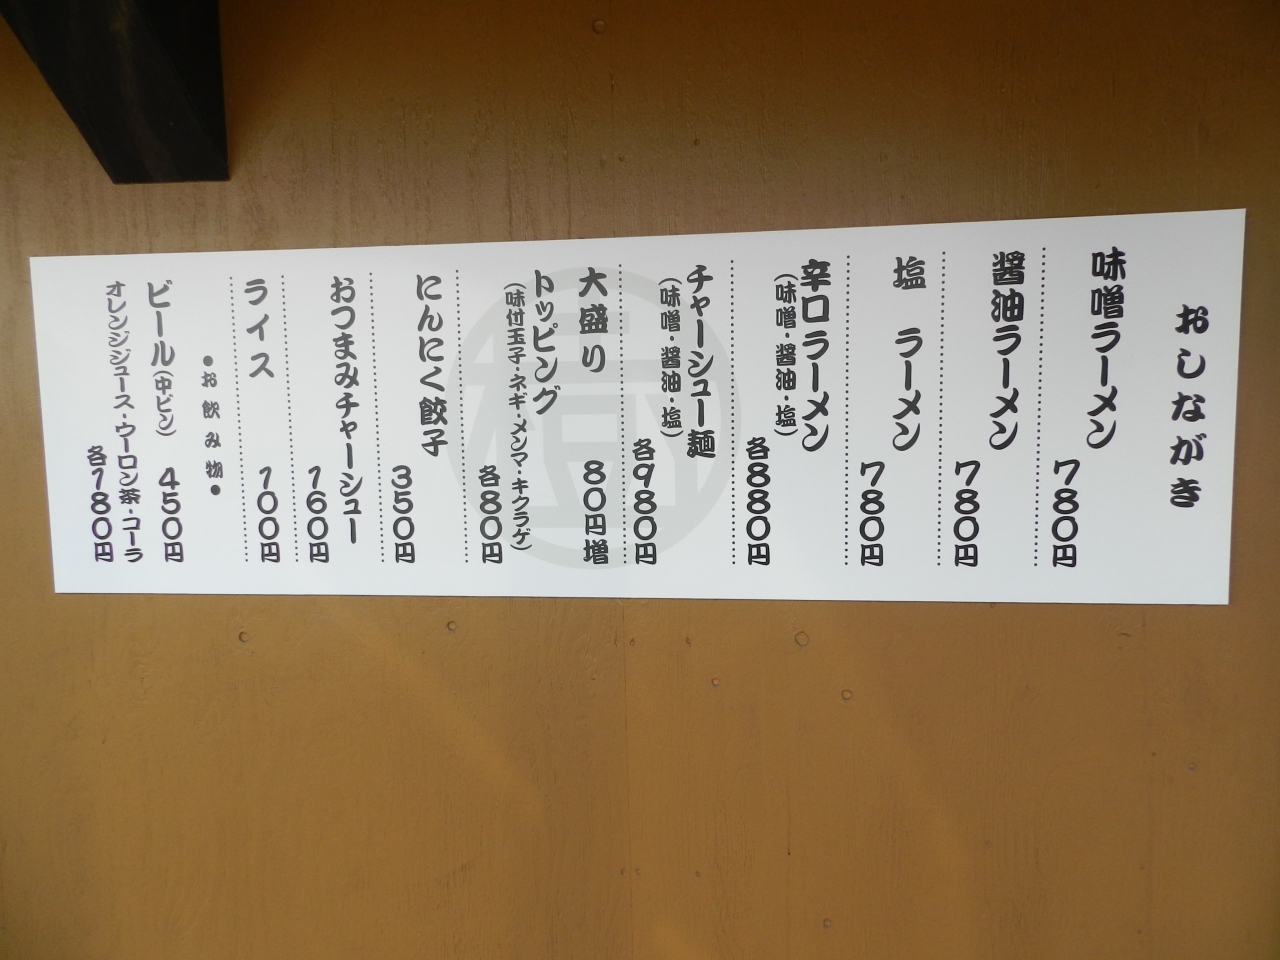 おしながき
味噌ラーメン
780円
醤油ラーメン
780円
塩 ラーメン
780円
辛口ラーメン
(味噌・醤油・塩)
各880円
チャーシュー麺
(味噌・醤油・塩)
各980円
大盛り 80円増
トッピング
(味付玉子・ネギ・メンマ・キクラゲ)
各80円
にんにく餃子
350円
おつまみチャーシュー
160円
ライス 100円
●お飲み物●
ビール(中ビン) 450円
オレンジジュース・ウーロン茶・コーラ
各180円